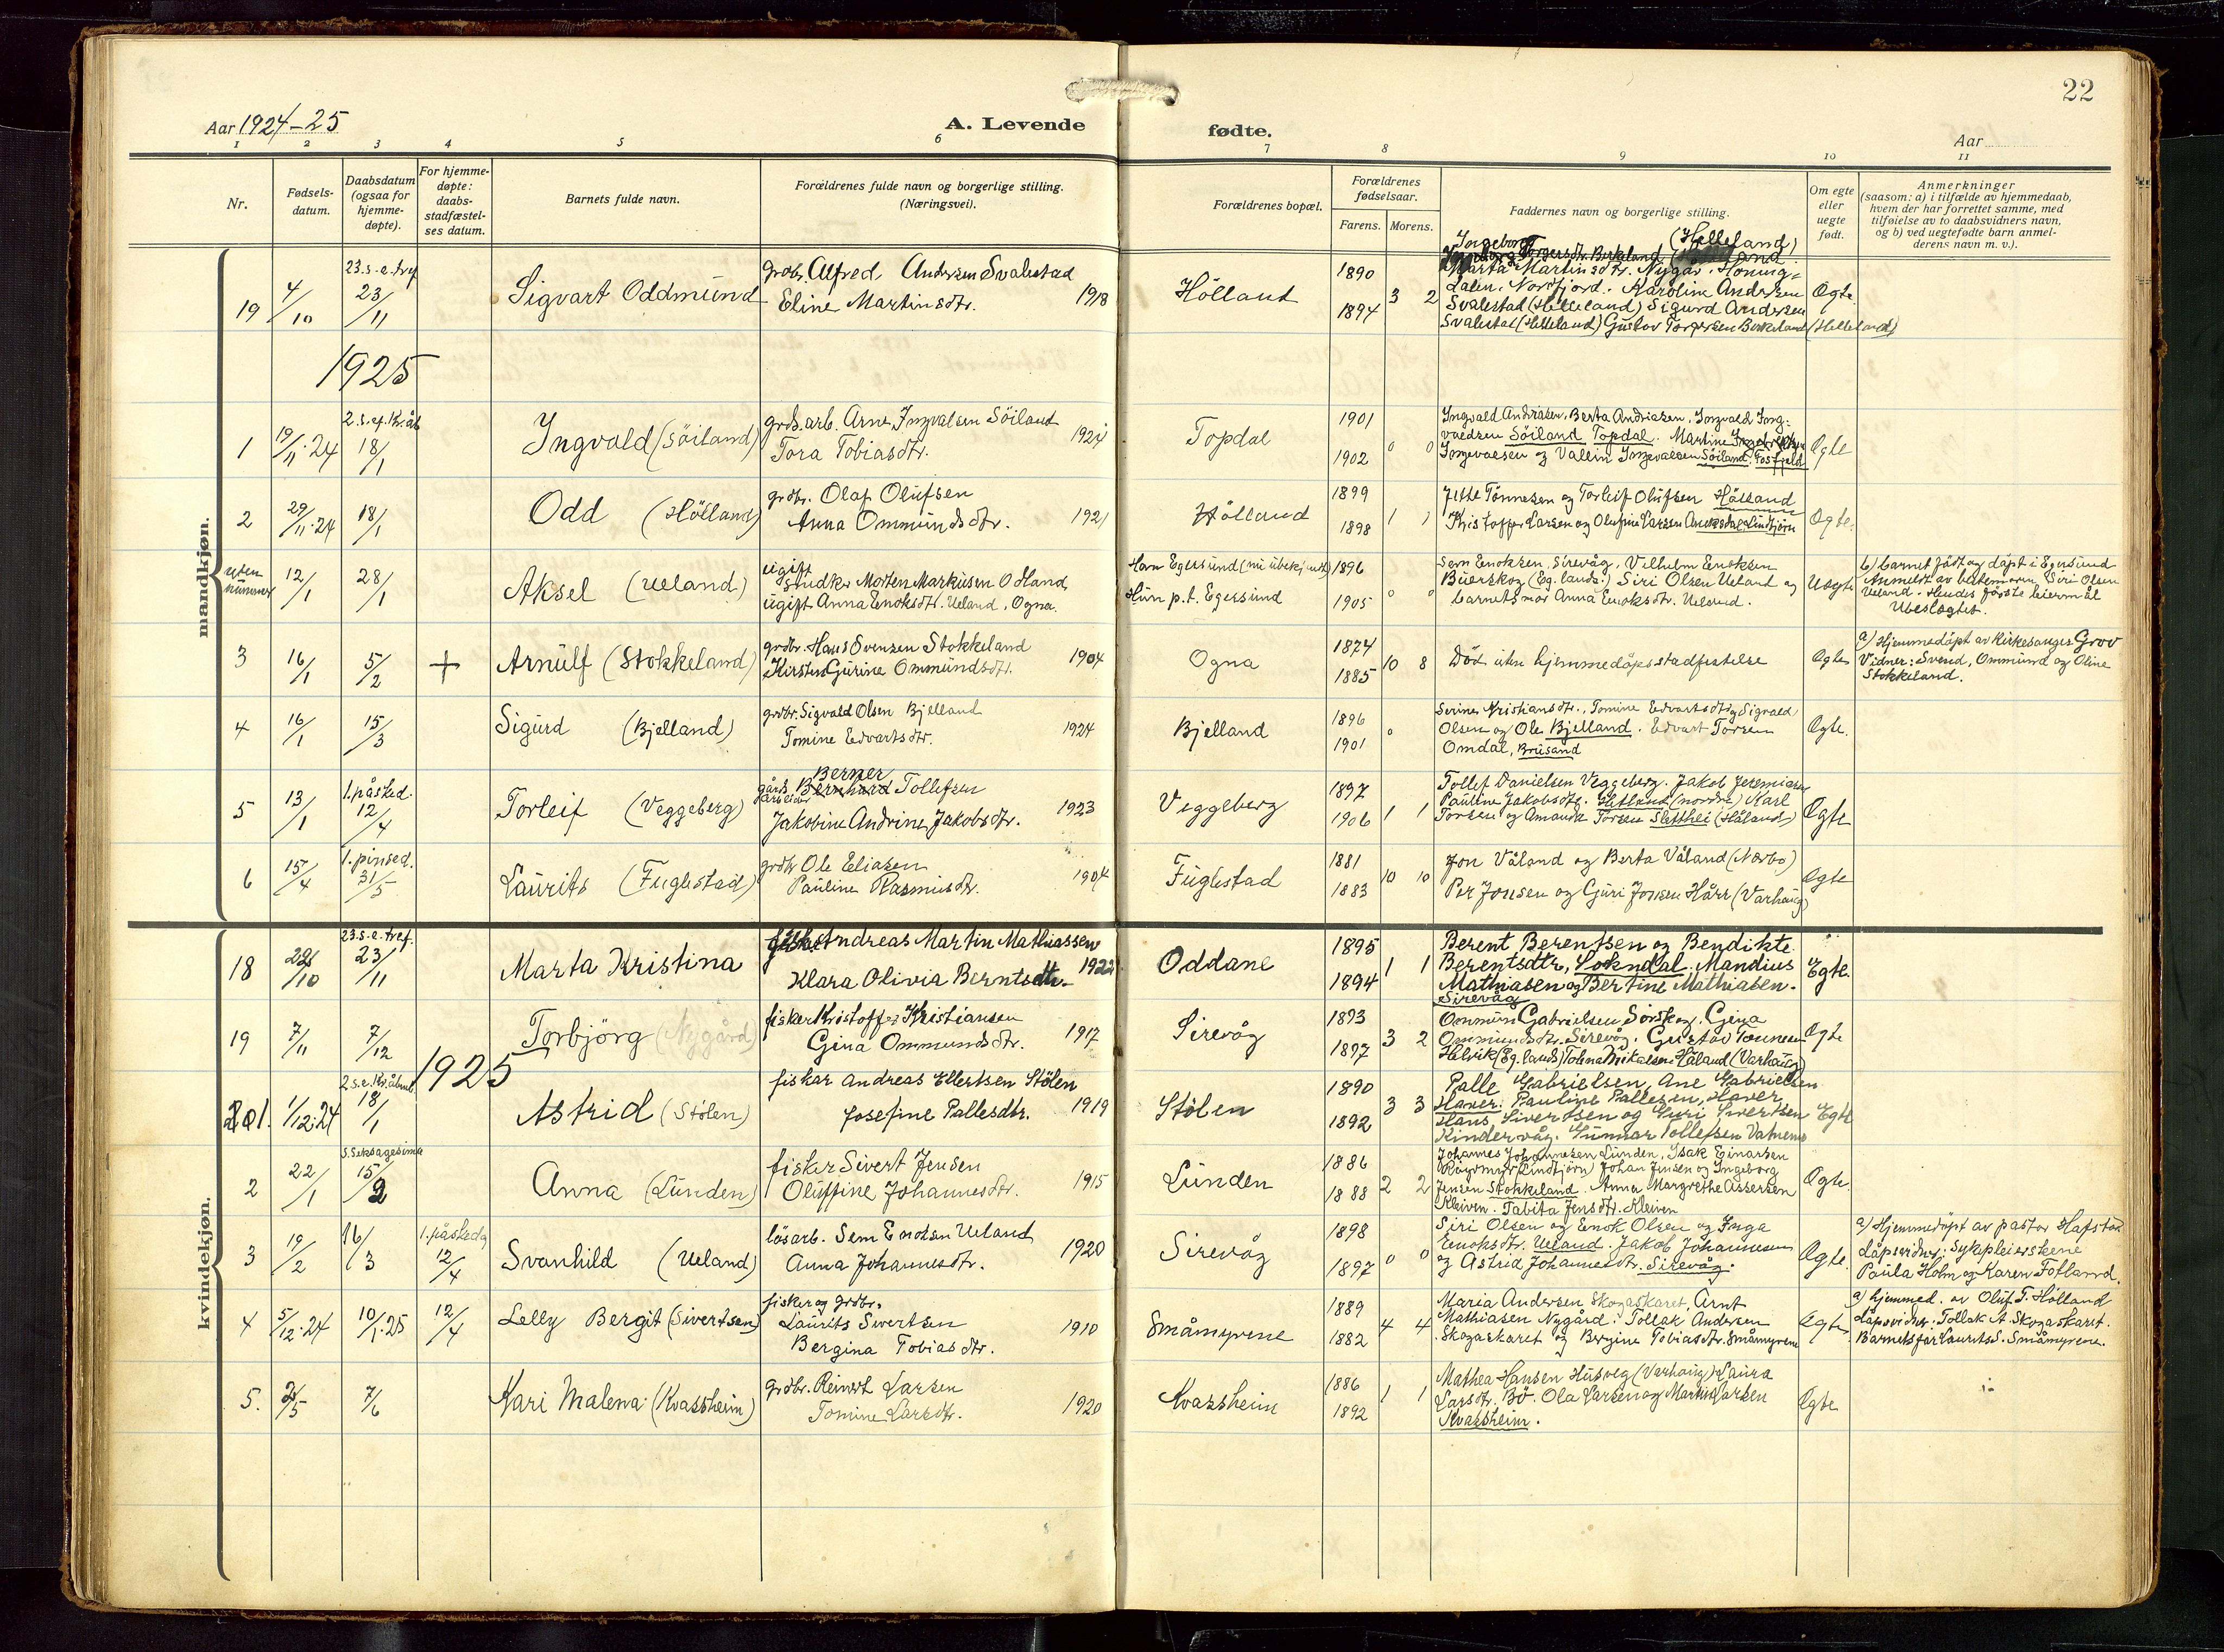 22
Aar 1924-25
A. Levende fødte.
Aar
1 2 3 4 5 6 7 8 9 10 11
Nr.
Fødsels-
datum.
Daabsdatum
(ogsaa for
hjemme-
døpte).
For hjemme-
døpte:
daabs-
stadfæstel-
ses datum.
Barnets fulde navn.
Forældrenes fulde navn og borgerlige stilling.
(Næringsvei).
Forældrenes bopæl.
Forældrenes
fødselsaar.
Farens. Morens.
Faddernes navn og borgerlige stilling.
Om egte
eller
uegte
født.
Anmerkninger
(saasom: a) i tilfælde av hjemmedaab,
hvem der har forrettet samme, med
tilføielse av to daabsvidners navn,
og b) ved uegtefødte barn anmel-
derens navn m. v.).
mandkjøn.
19 4/10 23.s.e.tref 23/11 Sigvart Oddmund
grdbr. Alfred Andersen Svalestad
Eline Martinsdtr. 1918
Hölland 1890 1894 3 2
Ingeborg Torgersdtr. Birkeland (Helleland)
Marta Martinsdtr. Nygår, Höning-
dalen, Nordfjord. Karoline Andersen
Svalestad (Helleland) Sigurd Andersen
Svalestad (Helleland) Gustov Torgersen Birkeland (Helleland)
Ogte
1925
1 19/11.24 2.s.ef.Kr.åb 18/1 Ingvald (Söiland)
grds.arb. Arne Ingvalsen Söiland
Tora Tobiasdtr. 1924
Topdal 1901 1902 0 0
Ingvald Andriasen, Berta Andriasen, Ingvald Ing-
valdsen Söiland Topdal. Martine
Ingvalsen og Vallin Ingvalsen Söiland, Fosfjeld
Ogte
2 29/11.24 18/1 Odd (Hölland)
grdbr. Olaf Olufsen
Anna Ommundsdtr. 1921
Hölland 1899 1898 1 1
Jette Tönnesen og Torleif Olufsen Hölland
Kristoffer Larsen og Olufine Larsen Lindtjörn
Ogte.
uten nummer 12/1 28/1 Aksel (Ueland)
ugift
Morten Markusen O Hand
ugift Anna Enoksdtr. Ueland, Ogna.
Han Egersund (nu ubekjendt)
Hun p.t. Egersund
1896 1905 0 0
Sem Enoksen, Sirevåg, Vilhelm Enoksen
Buerskog (Eg. lands) Siri Olsen Ueland og
barnets mor Anna Enoksdtr. Ueland.
Uegte
b) barnet född og döpt i Egersund
Anmeldt av bestemoren, Siri Olsen
Ueland. Hendes förste leiermål
Ubeslegtet.
3 16/1 5/2 + Arnulf (Stokkeland)
grdbr. Hans Svensen Stokkeland
Kirsten Gurine Ommundsdtr. 1904
Ogna 1874 1885 10 8
Död uten hjemmedåpsstadfestelse
Ogte
a) Hjemmedöpt av kirkesanger Grov
Vidner: Svend, Ommund og Oline
Stokkeland.
4 16/1 15/3 Sigurd (Bjelland)
grdbr. Sigvald Olsen Bjelland
Tomine Edvartsdtr. 1924
Bjelland 1896 1901 0
Serine Kristiansdtr., Tomine Edvartsdtr og Sigvald
Olsen og Ole Bjelland. Edvart Torsen
Omdal, Brusand
Ogte.
5 13/1 1.påsked. 12/4 Torleif (Veggeberg)
gårdsarbeider Berner Bernhard Tollefsen
Jakobine Andrine Jakobsdtr. 1923
Veggeberg 1897 1906 1 1
Tollef Danielsen Veggeberg. Jakob Jeremiasen
Pauline Jakobsdtr. Hetland (nordre) Karl
Torsen og Amanda Torsen Sletthei (Håland)
Ogte
6 15/4 1.pinsed. 31/5 Laurits (Fuglestad)
grdbr Ole Eliasen
Pauline Rasmusdtr. 1904
Fuglestad 1881 1883 10 10
Jon Våland og Berta Våland (Nærbö)
Per Jonsen og Guri Jonsen Hårr (Varhaug)
Ogte
kvindekjøn.
18 22/10 23.s.e.tref. 23/11 Marta Kristina
fisker Andreas Martin Mathiassen
Klara Olivia Berntsdtr. 1922
Oddane 1895 1894 1 1
Berent Berentsen og Bendikte
Berentsdtr, Sokndal. Mandius
Mathiasen og Bertine Mathiasen.
Sirevåg
Egte.
19 7/11 7/12 Torbjörg (Nygård)
fisker Kristoffer Kristiansen
Gina Ommundsdtr. 1917
Sirevåg 1893 1897 3 2
Ommund Gabrielsen, Sörskog. Gina
Ommundsdtr. Sirevåg. Gustav Tönnesen
Helvik (Eg. lands) Tolina Mikalsen Håland (Varhaug)
Ogte
1925
1. 1/12.24 2.s.e.Kr.åbenb. 18/1 Astrid (Stölen)
fisker Andreas Ellertsen Stölen
Josefine Pallesdtr. 1919
Stölen 1890 1892 3 3
Palle Gabrielsen, Ane Gabrielsen
Haver. Pauline Pallesen, Haver
Hans Sivertsen og Guri Sivertsen
Kindervåg. Gunnar Tollefsen Vatnemo
Egte
2 22/1 S.Seksagesima 15/2 Anna (Lunden)
fisker Sivert Jensen
Oluffine Johannesdtr. 1915
Lunden 1886 1888 2 2
Johannes Johannesen Lunden, Isak Einarsen
Röyrmyr (Lindtjörn) Johan Jensen og Ingeborg
Jensen Stokkeland. Anna Margrethe Assersen
Kleiven. Tabita Jensdtr. Kleiven
Ogte.
3 19/2 16/3 1.påskedag 12/4 Svanhild (Ueland)
lösarb. Sem Enoksen Ueland
Anna Johannesdtr. 1920
Sirevåg 1898 1897 0 0
Siri Olsen og Enok Olsen og Inga
Enoksdtr. Ueland. Jakob Johannesen
og Astrid Johannesdtr. Sirevåg.
Ogte.
a) Hjemmedöpt av pastor Hafstad
Dåpsvidner: Sykepleierskene
Paula Holm og Karen Fotland.
4 5/12.24 10/1.25 12/4 Lelly Bergit (Sivertsen)
fisker og grdbr.
Laurits Sivertsen
Bergina Tobiasdtr. 1910
Småmyrene 1889 1882 4 4
Maria Andersen Skogaskaret, Arnt
Mathiasen Nygård. Tollak Andersen
Skogaskaret og Bergine Tobiasdtr. Småmyrene
Ogte
a) hjemmed. av Oluf T. Hölland
Dåpsvidner: Tollak A. Skogaskaret.
Barnets far Laurits S. Småmyrene.
5. /5 7/6 Kari Malena (Kvassheim)
grdbr. Reinert Larsen
Tomine Larsdtr. 1920
Kvassheim 1886 1892 1 1
Mathea Hansen Husveg (Varhaug) Laura
Larsdtr. Bö. Ola Larsen og Martin Larsen
Kvassheim.
Ogte